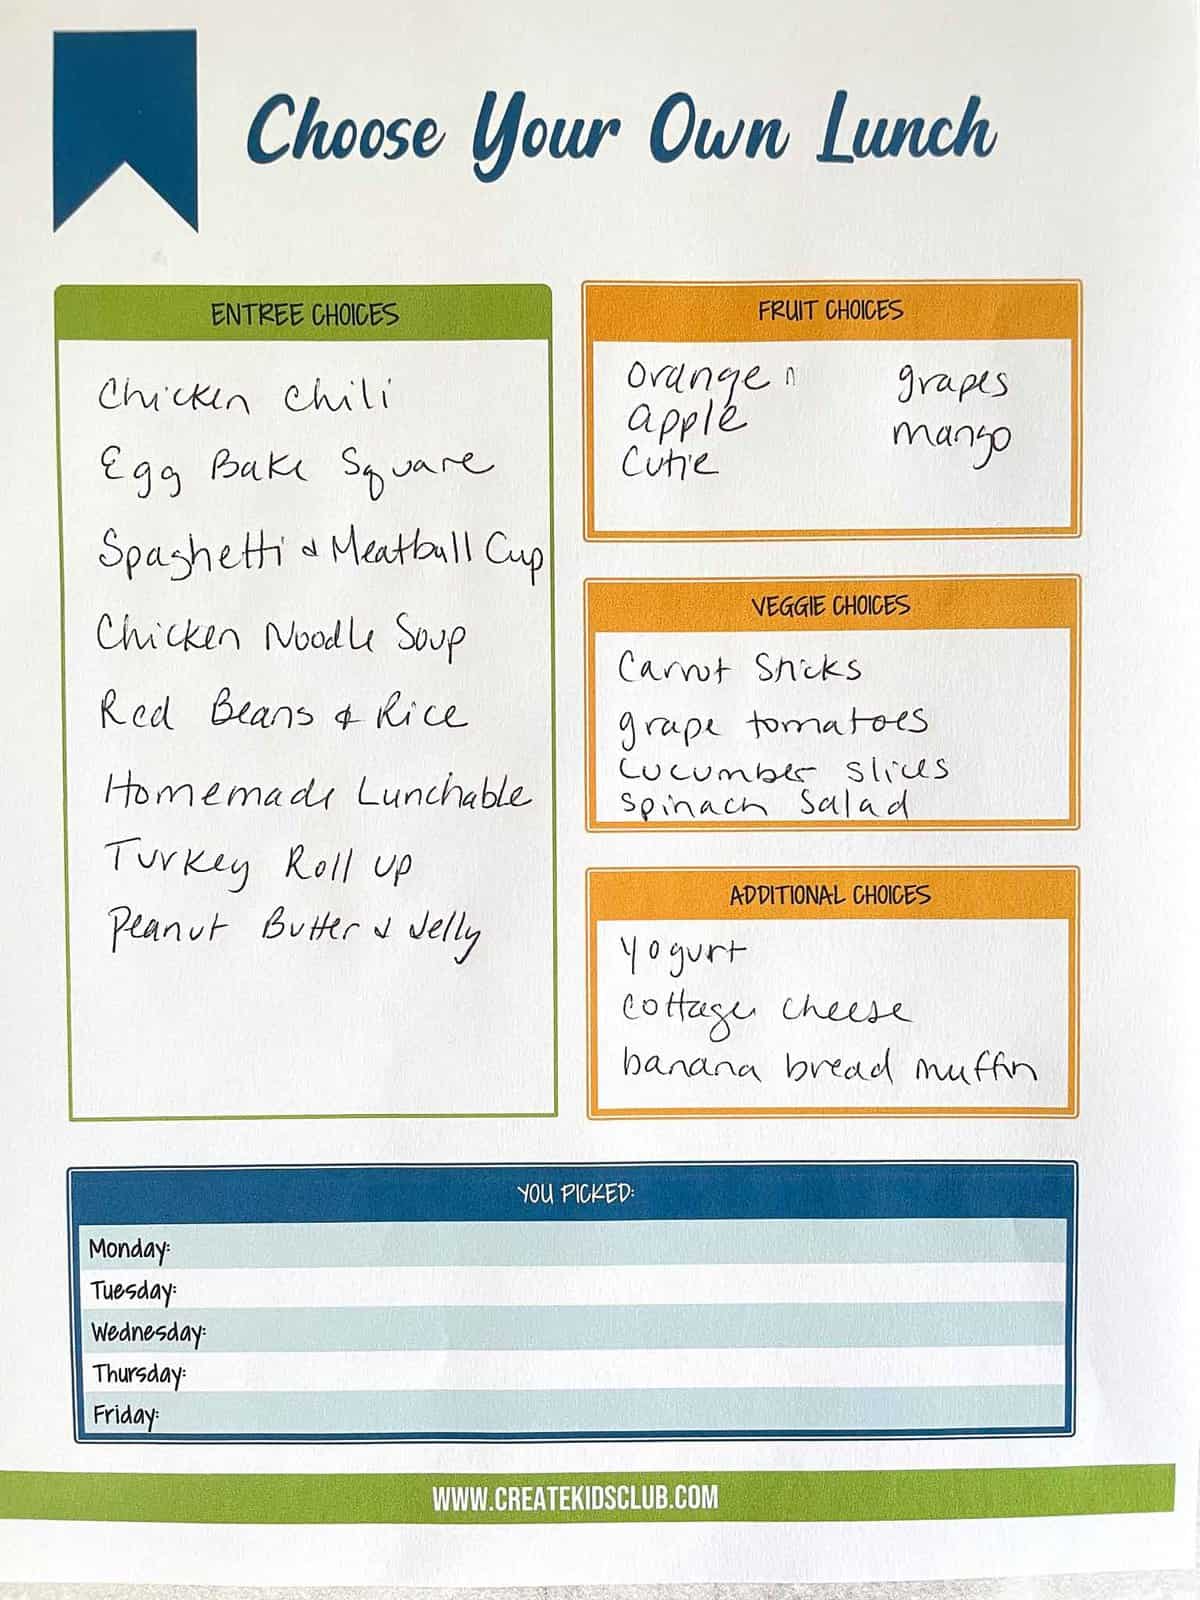 Choose Your Own Lunch
ENTREE CHOICES
Chicken Chili
Egg Bake Square
Spaghetti & Meatball Cup
Chicken Noodle Soup
Red Beans & Rice
Homemade Lunchable
Turkey Roll up
Peanut Butter & Jelly
FRUIT CHOICES
orange
apple
cutie
grapes
mango
VEGGIE CHOICES
Carrot Sticks
grape tomatoes
cucumber slices
spinach salad
ADDITIONAL CHOICES
yogurt
cottage cheese
banana bread muffin
YOU PICKED:
Monday:
Tuesday:
Wednesday:
Thursday:
Friday:
WWW.CREATEKIDSCLUB.COM